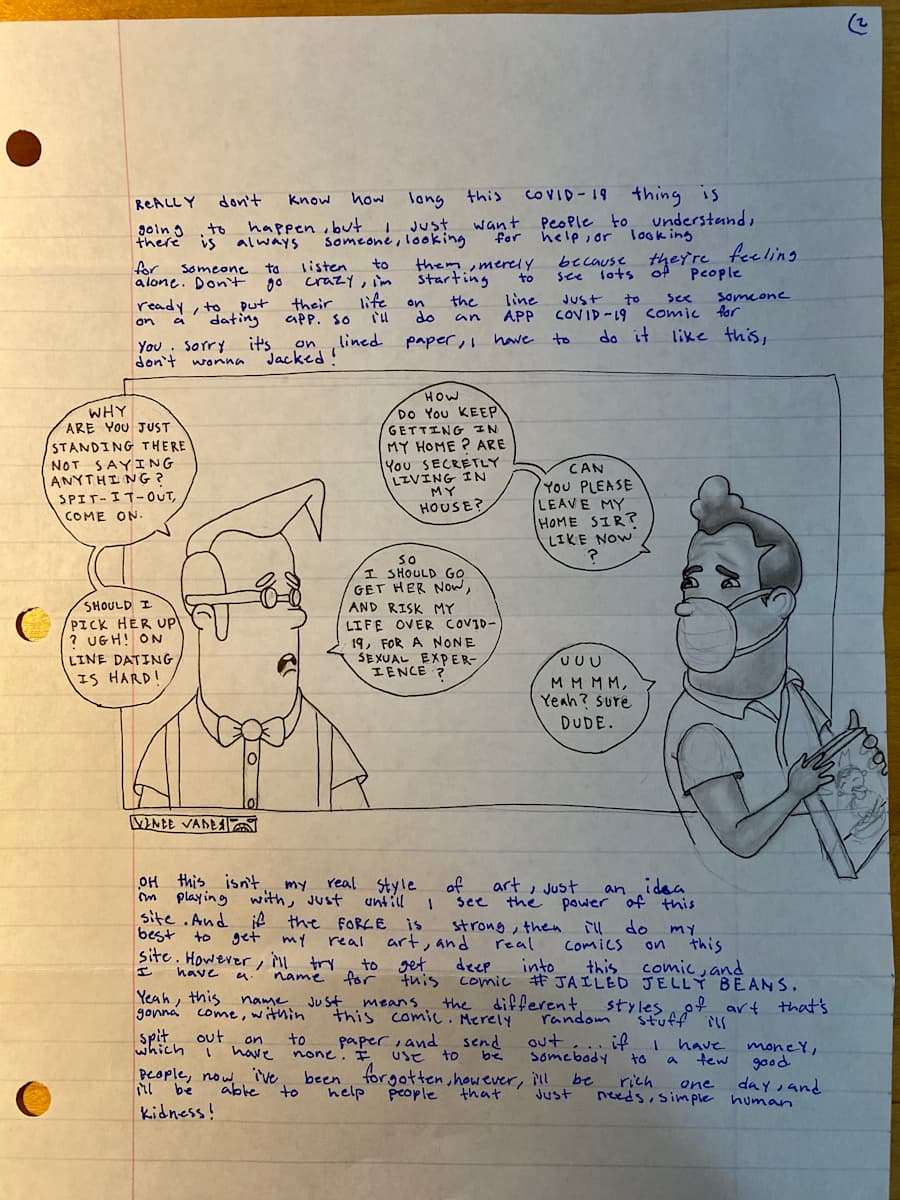 (2
REALLY don't know how long this COVID-19 thing is
going to happen, but I just want people to understand,
there is always someone, looking for help, or looking
for someone to listen to them, merely because they're feeling
alone. Don't go crazy, i'm starting to see lots of people
ready, to put their life on the line just to see someone
on a dating app. so i'll do an APP COVID-19 comic for
you. sorry it's on lined paper, I have to do it like this,
don't wonna Jacked!
WHY
ARE YOU JUST
STANDING THERE
NOT SAYING
ANYTHING?
SPIT-IT-OUT,
COME ON.
SHOULD I
PICK HER UP
? UGH! ON
LINE DATING
IS HARD!
HOW
DO YOU KEEP
GETTING IN
MY HOME? ARE
YOU SECRETLY
LIVING IN
MY
HOUSE?
CAN
YOU PLEASE
LEAVE MY
HOME SIR?
LIKE NOW
?
SO
I SHOULD GO
GET HER NOW,
AND RISK MY
LIFE OVER COVID-
19, FOR A NONE
SEXUAL EXPER-
IENCE?
UUU
MMMM,
Yeah? Sure
DUDE.
VINCE VADER
OH this isn't my real style of art, just an idea
i'm playing with, just untill I see the power of this
site. And if the FORCE is strong, then i'll do my
best to get my real art, and real comics on this
site. However, i'll try to get deep into this comic, and
I have a name for this comic # JAILED JELLY BEANS.
Yeah, this name just means the different styles of art that's
gonna come, within this comic. Merely random stuff i'll
spit out on to paper, and send out... if I have money,
which I have none. I use to be somebody to a few good
people, now i've been forgotten, however, i'll be rich one day, and
i'll be able to help people that just needs, simple human
kidness!